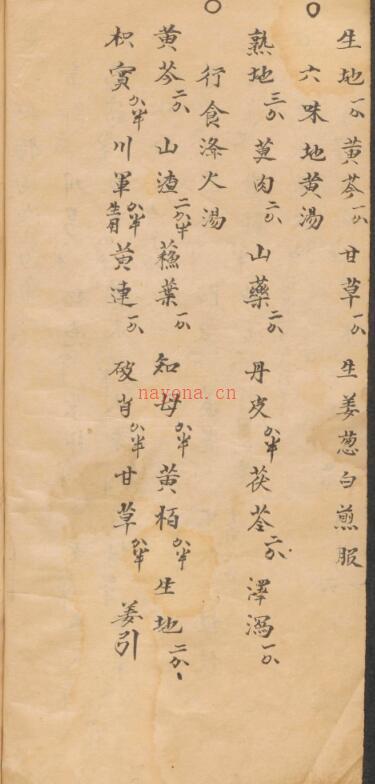 生地一分 黄芩一分 甘草一分 生姜葱白煎服
○ 六味地黄湯
熟地三分 萸肉二分 山藥二分 丹皮分半 茯苓二分 澤瀉一分
○ 行食滌火湯
黄芩二分 山渣二分半 蘓葉一分 知母分半 黄栢分半 生地二分
枳實分半 川軍分半生用 黄連一分 破肖分半 甘草分半 姜引
nayona.cn